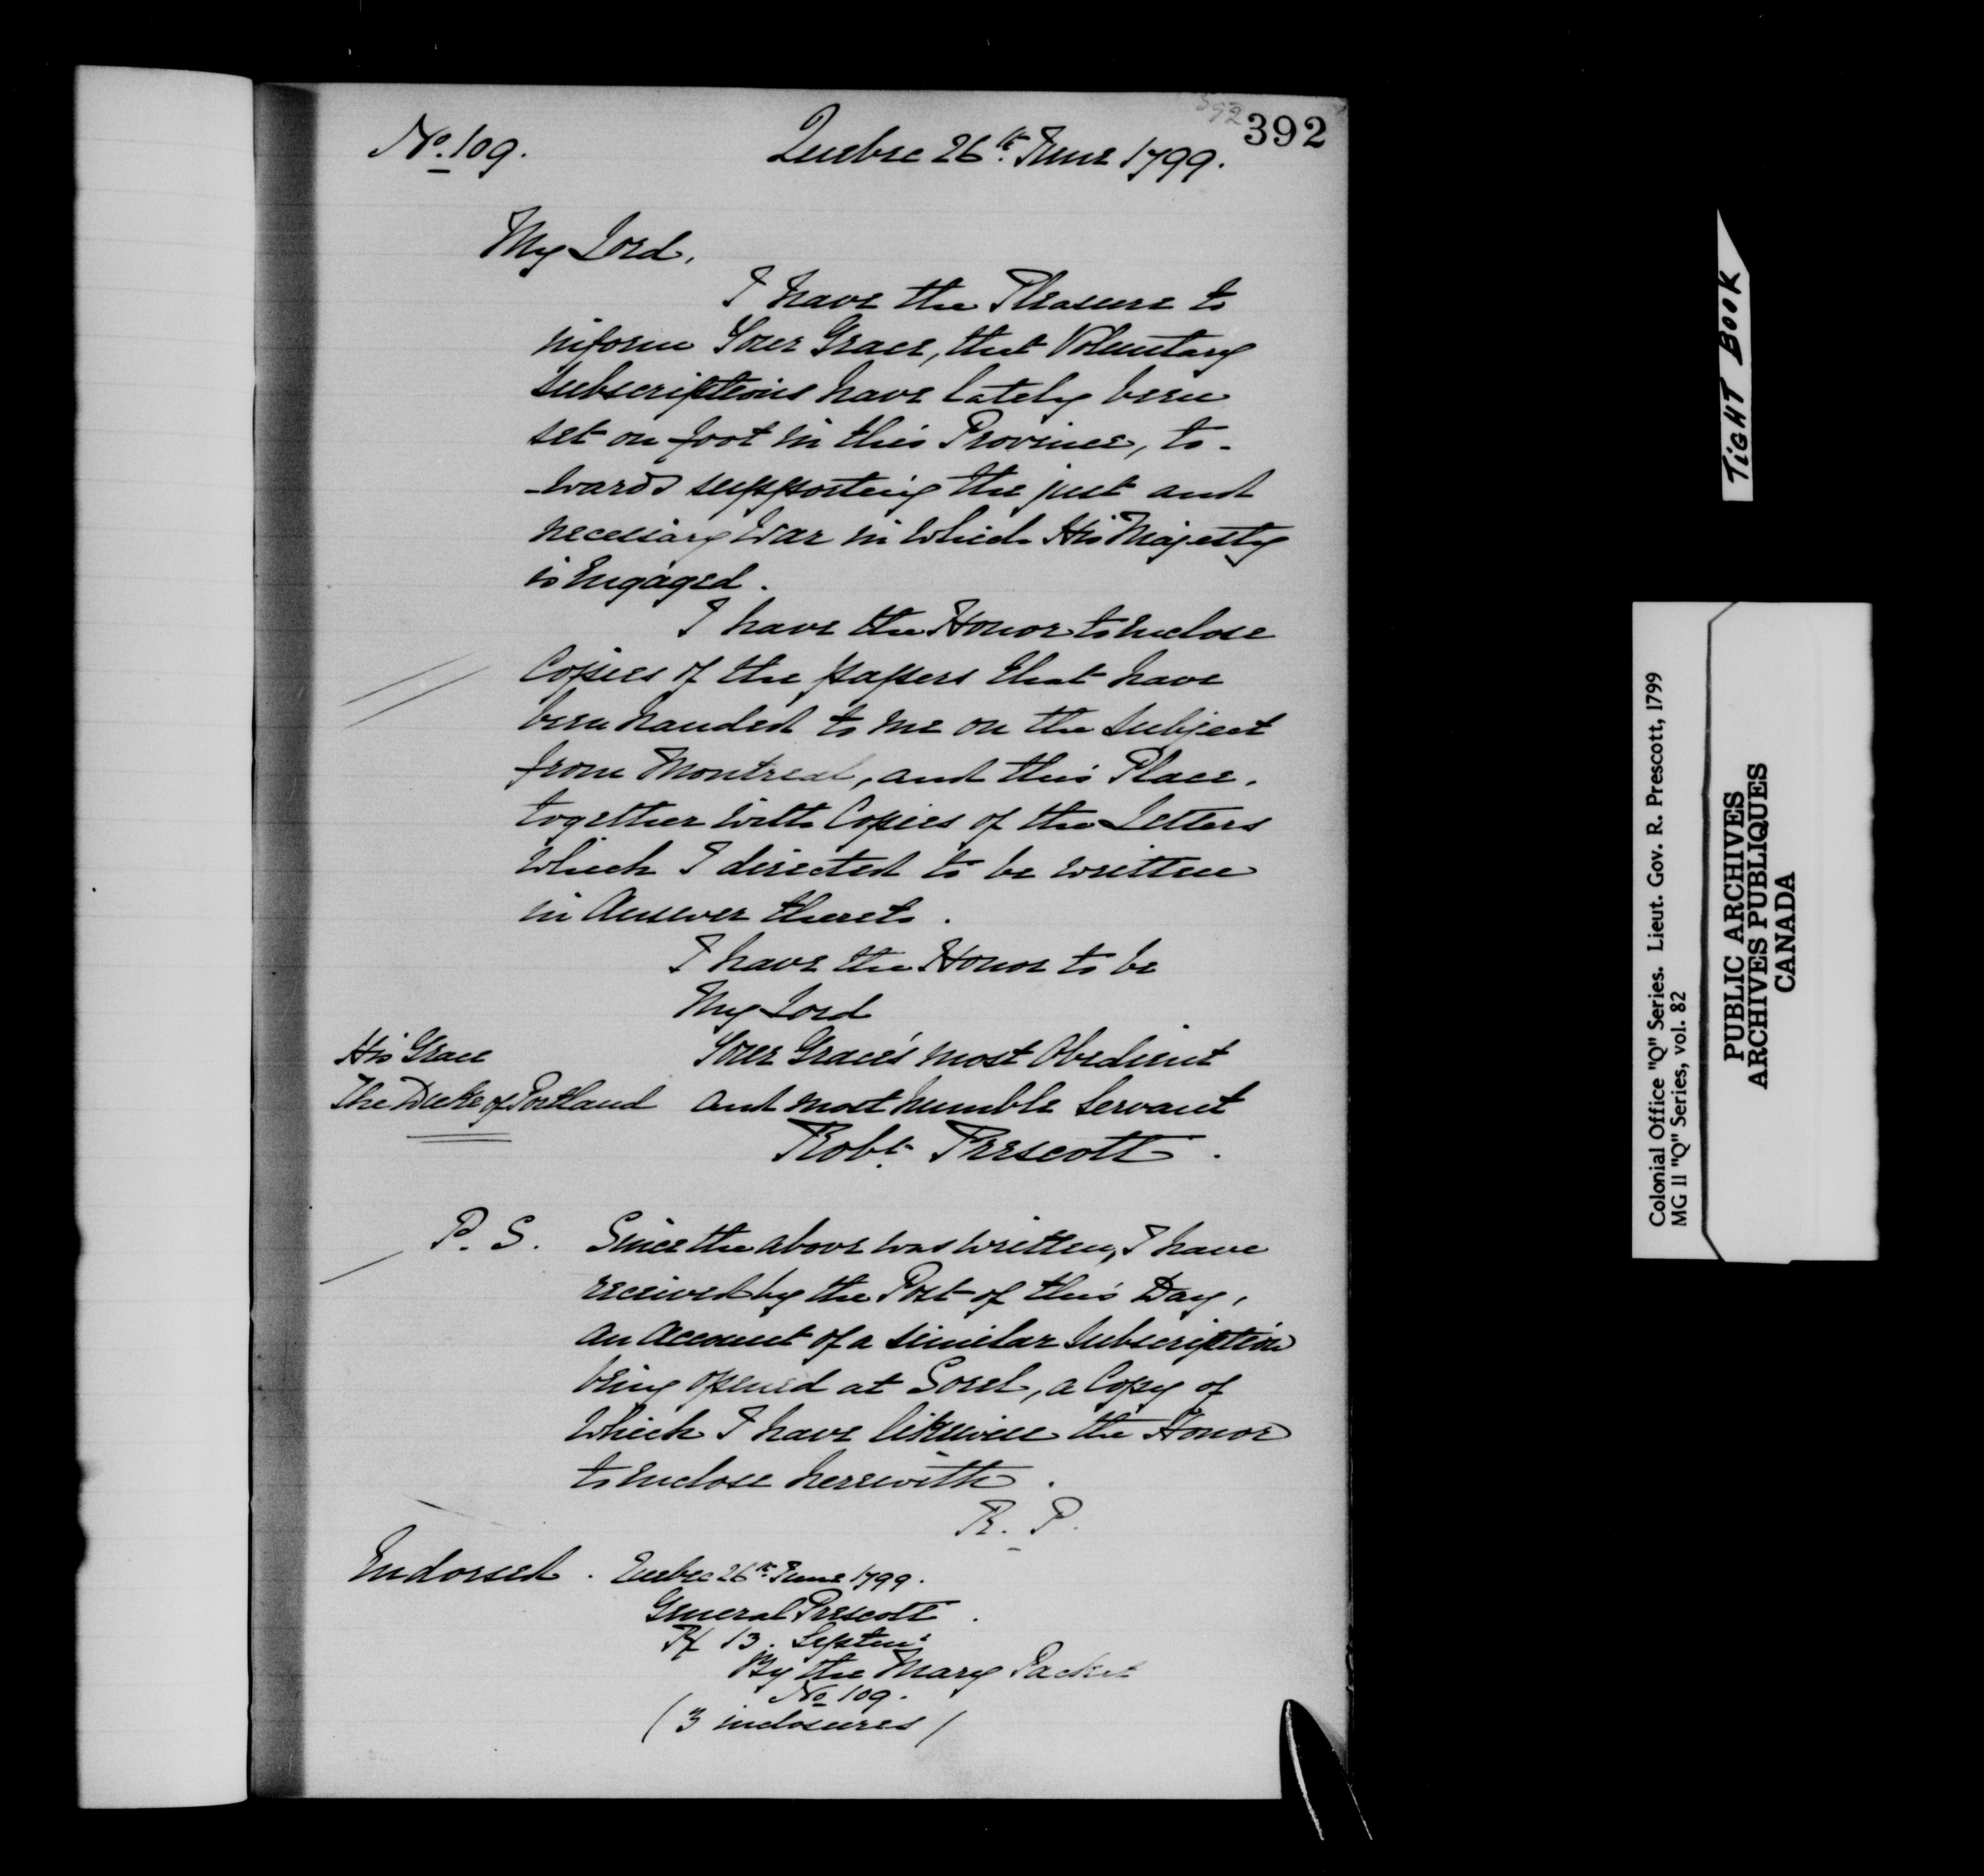 392
392
No. 109.
Quebec 26th June 1799.
My Lord,
I have the Pleasure to
inform Your Grace, that Voluntary
subscriptions have lately been
set on foot in this Province, to-
-wards supporting the just and
necessary War in which His Majesty
is Engaged.
I have the Honor to Enclose
Copies of the papers that have
been handed to me on the subject
from Montreal, and this Place,
together with Copies of the Letters
which I directed to be written
in Answer thereto.
I have the Honor to be
My Lord
Your Grace's most Obedient
and most humble Servant
Robt. Prescott.
His Grace
The Duke of Portland
P. S. Since the above was written, I have
received by the Post of this Day,
an Account of a similar Subscription
being opened at Sorel, a Copy of
which I have likewise the Honor
to Enclose herewith.
R. P.
Endorsed. Quebec 26th June 1799.
General Prescott.
Rx 13. Septemr
By the Mary Packet
No 109.
(3 inclosures)
TIGHT BOOK
Colonial Office "Q" Series. Lieut. Gov. R. Prescott, 1799
MG II "Q" Series, vol. 82
PUBLIC ARCHIVES
ARCHIVES PUBLIQUES
CANADA